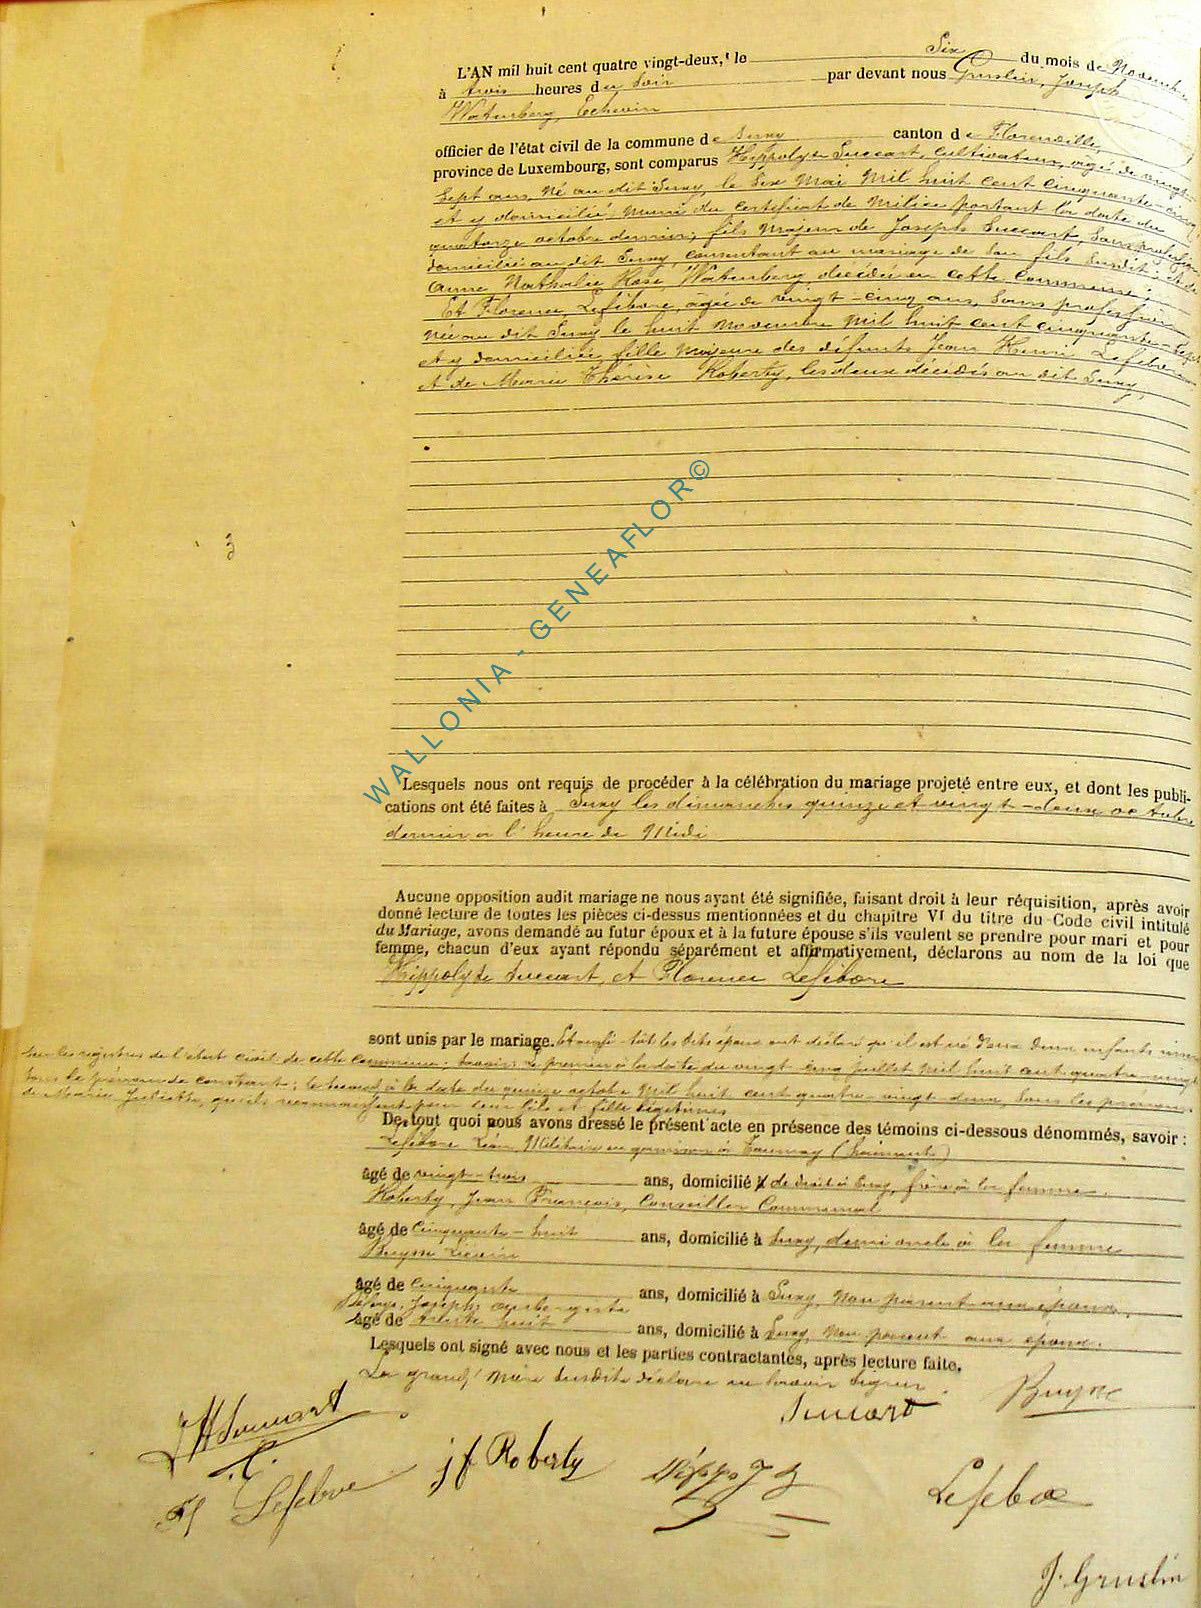 L'AN mil huit cent quatre vingt-deux, le Six du mois de Novembre
à trois heures du Soir par devant nous Gruslin, Joseph
Watenberg, Echevin
officier de l'état civil de la commune de Suxy canton de Florenville,
province de Luxembourg, sont comparus Hippolyte Succart, cultivateur, agé de vingt-
Sept ans, Né au dit Suxy, le Six Mai Mil huit cent cinquante-cinq
et y domicilié, Muni du certificat de Milice portant la date du
quatorze octobre dernier, fils Majeur de Joseph Succart, Sans profession
domicilié au dit Suxy, consentant au mariage de Son fils Susdit et de
Anne Nathalie Rose Watenberg, décédée en cette commune.
Et Florence Lefèbvre, agée de vingt-cinq ans, Sans profession
Née au dit Suxy le huit Novembre Mil huit cent cinquante-Sept
et y domiciliée, fille Majeure des défunts Jean Henri Lefèbvre
et de Marie Thérèse Roberty, les deux décédés au dit Suxy,
3
WALLONIA - GENEAFLOR©
Lesquels nous ont requis de procéder à la célébration du mariage projeté entre eux, et dont les publi-
cations ont été faites à Suxy les dimanches quinze et vingt-deux octobre
dernier à l'heure de Midi
Aucune opposition audit mariage ne nous ayant été signifiée, faisant droit à leur réquisition, après avoir
donné lecture de toutes les pièces ci-dessus mentionnées et du chapitre VI du titre du Code civil intitulé
du Mariage, avons demandé au futur époux et à la future épouse s'ils veulent se prendre pour mari et pour
femme, chacun d'eux ayant répondu séparément et affirmativement, déclarons au nom de la loi que
Hippolyte Succart, et Florence Lefèbvre
sont unis par le mariage. Et aussi-tôt les dits époux ont déclaré qu'il est né d'eux deux enfants inscrits
Sur les registres de l'état civil de cette commune; Savoir; Le premier à la date du vingt-cinq juillet Mil huit cent quatre-vingt
Sous le prénom de constant; le Second, à la date du quinze octobre Mil huit cent quatre-vingt-deux, Sous les prénoms
de Marie Juliette, qu'ils reconnaissent pour leur fils et fille légitimes
De tout quoi nous avons dressé le présent acte en présence des témoins ci-dessous dénommés, savoir :
Lefèbvre Léon, Militaire en garnison à Tournay (hainaut)
âgé de vingt-trois ans, domicilié de droit à Suxy, frère à la femme.
Roberty, Jean François, Conseiller Communal
âgé de Cinquante-huit ans, domicilié à Suxy, demi oncle à la femme
Buysse Liévin
âgé de cinquante ans, domicilié à Suxy, Non parent aux époux,
Joseph, aubergiste
âgé de trente huit ans, domicilié à Suxy, Non parent aux époux.
Lesquels ont signé avec nous et les parties contractantes, après lecture faite.
La grand' Mère Susdite déclare ne Savoir Signer.
Succart Buysse
J H Succart
Fl Lefebvre j f Roberty Lefebvre
J. Gruslin